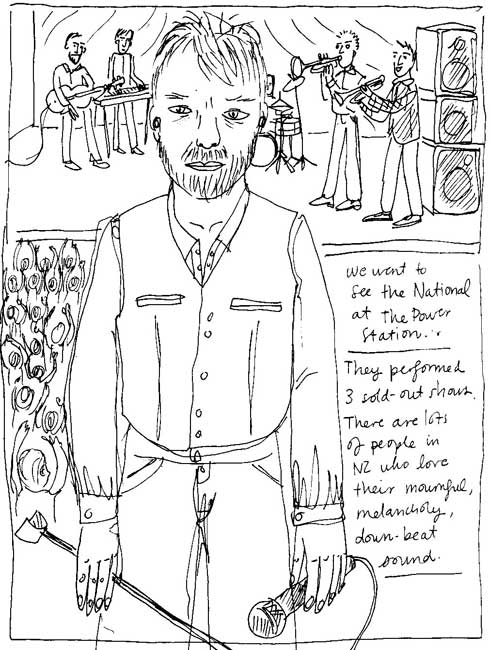 we went to
see the National
at The Power
Station...
They performed
3 sold-out shows.
There are lots
of people in
NZ who love
their mournful,
melancholy,
down-beat
sound.